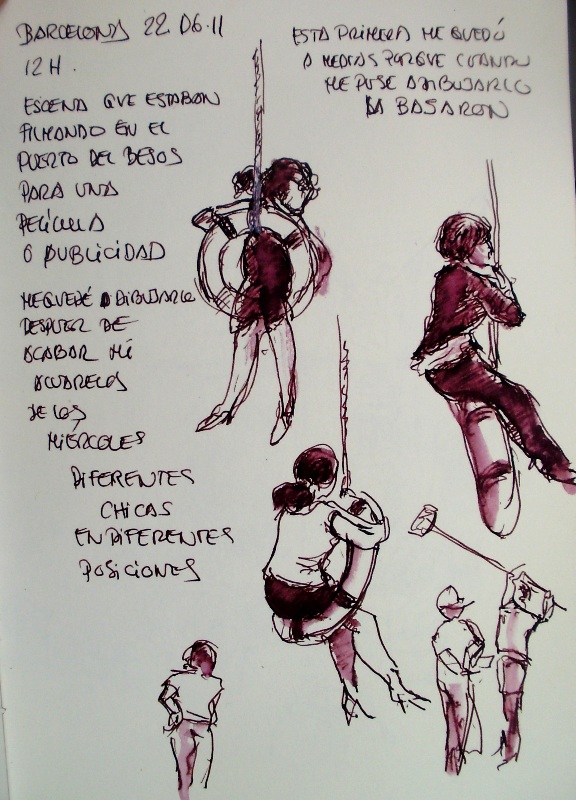 BARCELONA 22 06.11
12 H.
ESCENA QUE ESTABAN
FILMANDO EN EL
PUERTO DEL BESOS
PARA UNA
PELÍCULA
O PUBLICIDAD
ME QUEDÉ A DIBUJARLO
DESPUES DE
ACABAR MI
ACUARELA
DE LOS
MIÉRCOLES
DIFERENTES
CHICAS
EN DIFERENTES
POSICIONES
ESTA PRIMERA ME QUEDÓ
A MEDIAS PORQUE CUANDO
ME PUSE A DIBUJARLO
LA BAJARON